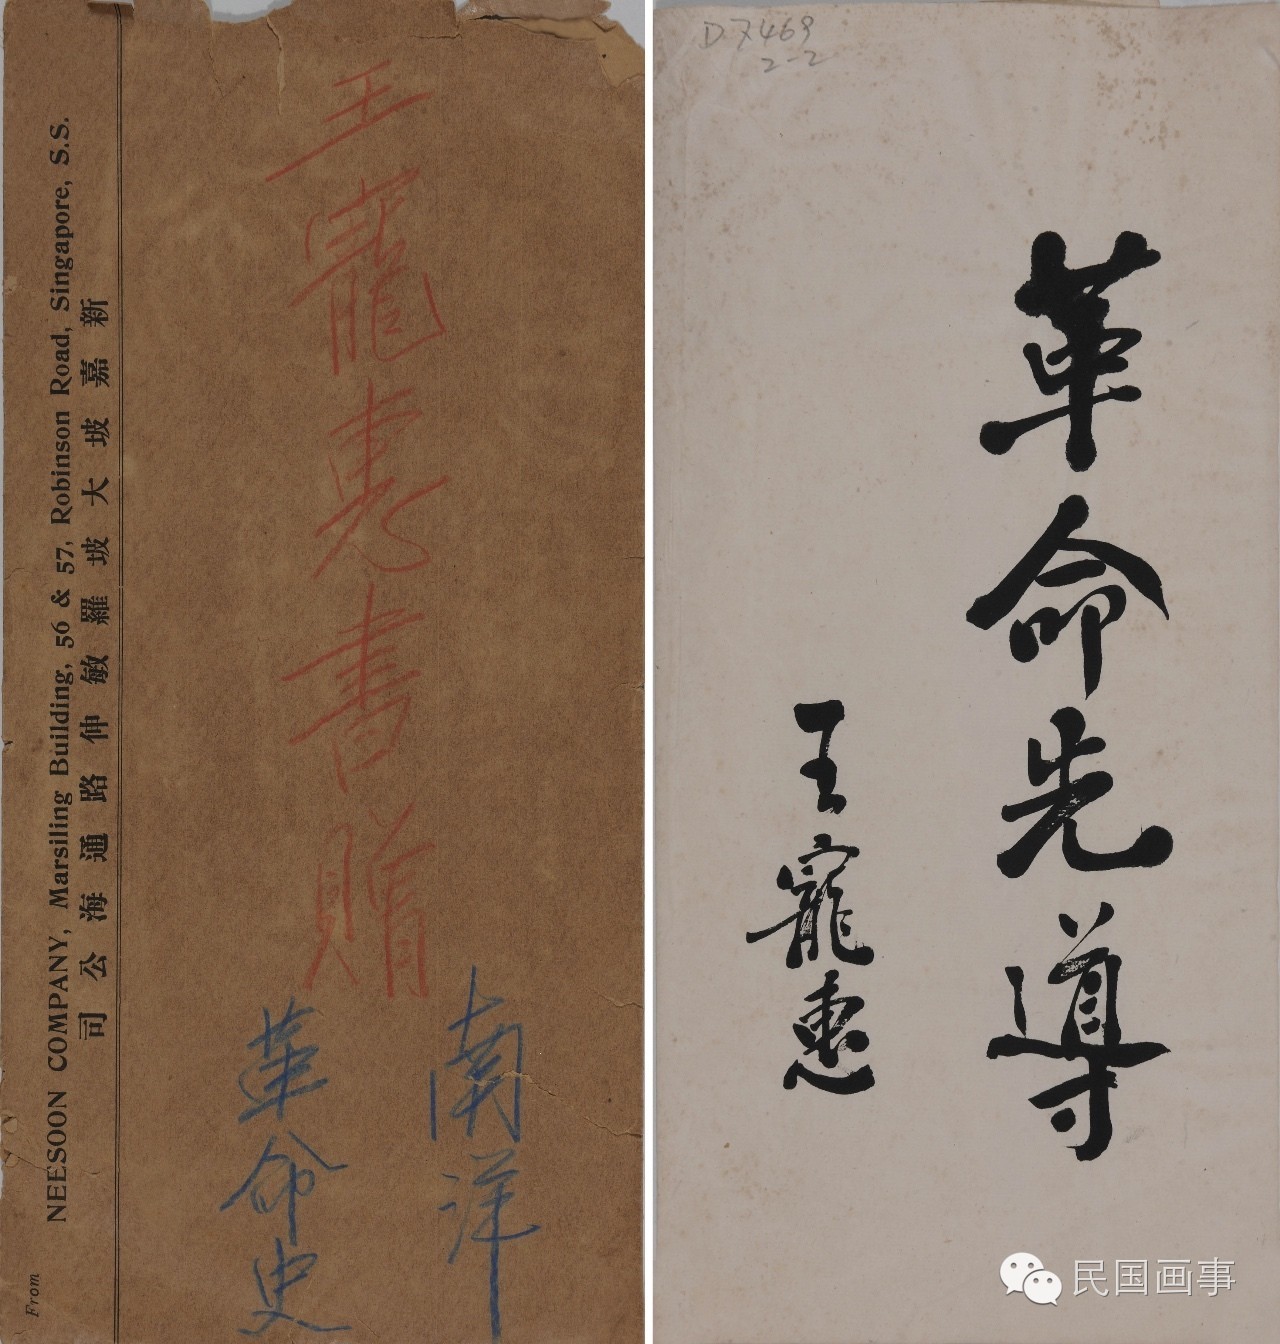 From
NEESOON COMPANY, Marsiling Building, 56 & 57, Robinson Road, Singapore, S.S.
新嘉坡大坡羅敏伸路通海公司
王寵惠書贈
南洋
革命史
D7469
2-2
革命先導
王寵惠
民国画事